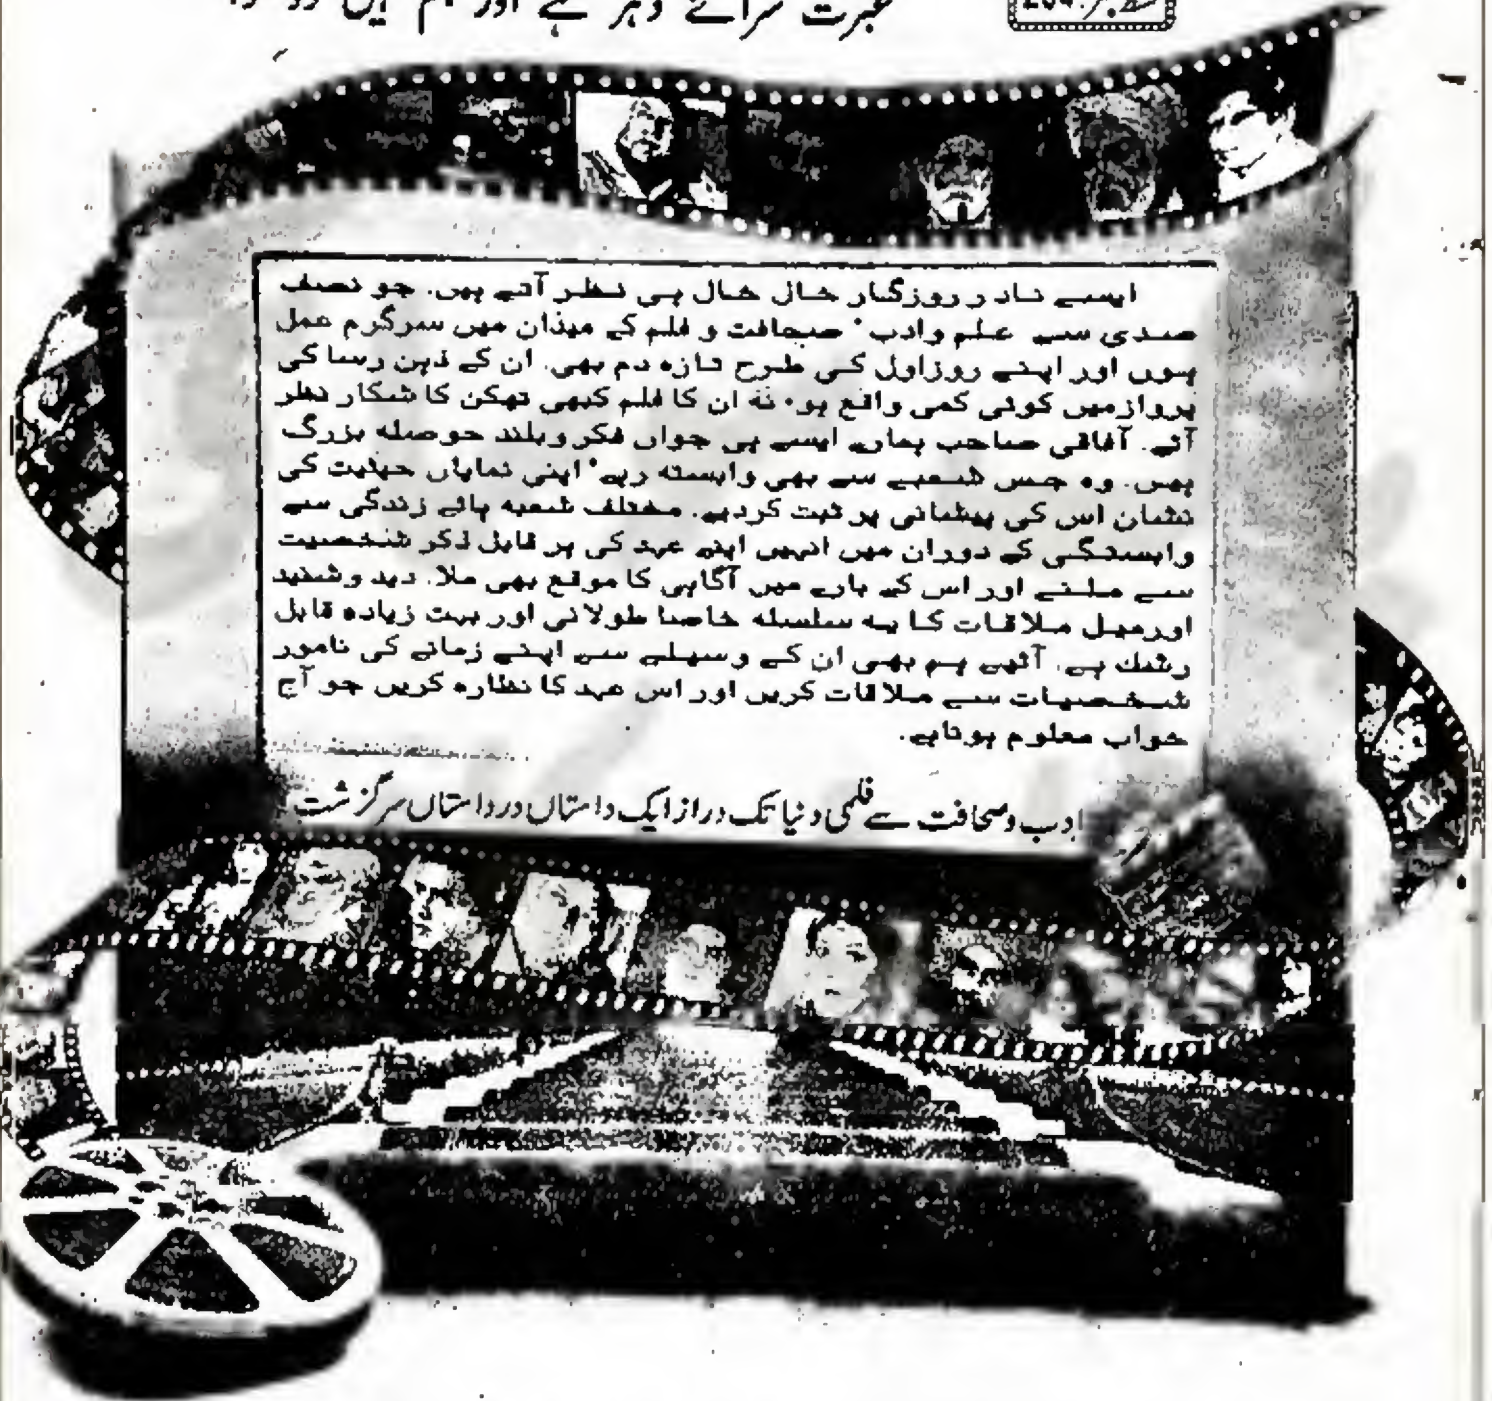 عبرت سرائے دہر ہے اور ہم ہیں
قسط نمبر: 204
ایسے نادر روزگار خال خال ہی نظر آتے ہیں۔ جو نصف
صدی سے علم وادب' صحافت و فلم کے میدان میں سرگرم عمل
ہوں اور اپنے روزاول کی طرح تازہ دم بھی۔ ان کے ذہن رسا کی
پرواز میں کوئی کمی واقع ہو' نہ ان کا قلم کبھی تھکن کا شکار نظر
آئے۔ آفاقی صاحب ہمارے ایسے ہی جواں فکر و بلند حوصلہ بزرگ
ہیں۔ وہ جس شعبے سے بھی وابستہ رہے' اپنی نمایاں حیثیت کی
نشان اس کی پیشانی پر ثبت کردیے۔ مختلف شعبہ ہائے زندگی سے
وابستگی کے دوران میں انہیں اپنے عہد کی ہر قابل ذکر شخصیت
سے ملنے اور اس کے بارے میں آگاہی کا موقع بھی ملا۔ دید و شنید
اور میل ملاقات کا یہ سلسلہ خاصا طولانی اور بہت زیادہ قابل
رشک ہے۔ آئیے ہم بھی ان کے وسیلے سے اپنے زمانے کی نامور
شخصیات سے ملاقات کریں اور اس عہد کا نظارہ کریں جو آج
خواب معلوم ہوتاہے۔
ادب و صحافت سے فلمی دنیا تک دراز ایک داستاں در داستاں سرگزشت